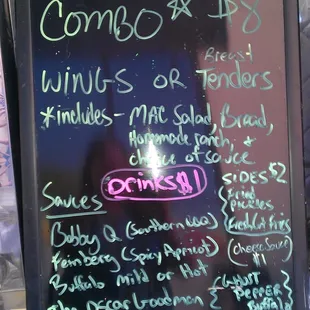 COMBO ☆ $8
Breast
WINGS OR Tenders
*includes - MAC Salad, Bread,
Homemade ranch, &
choice of sauce
Drinks $1
SIDES $2
Fried
pickles
Fresh Cut Fries
(Cheese Sauce
$1)
Sauces
Bobby Q (Southern BBQ)
Feinberg (Spicy Apricot)
Buffalo Mild or Hot
The Oscar Goodman
GHOST
PEPPER
Buffalo